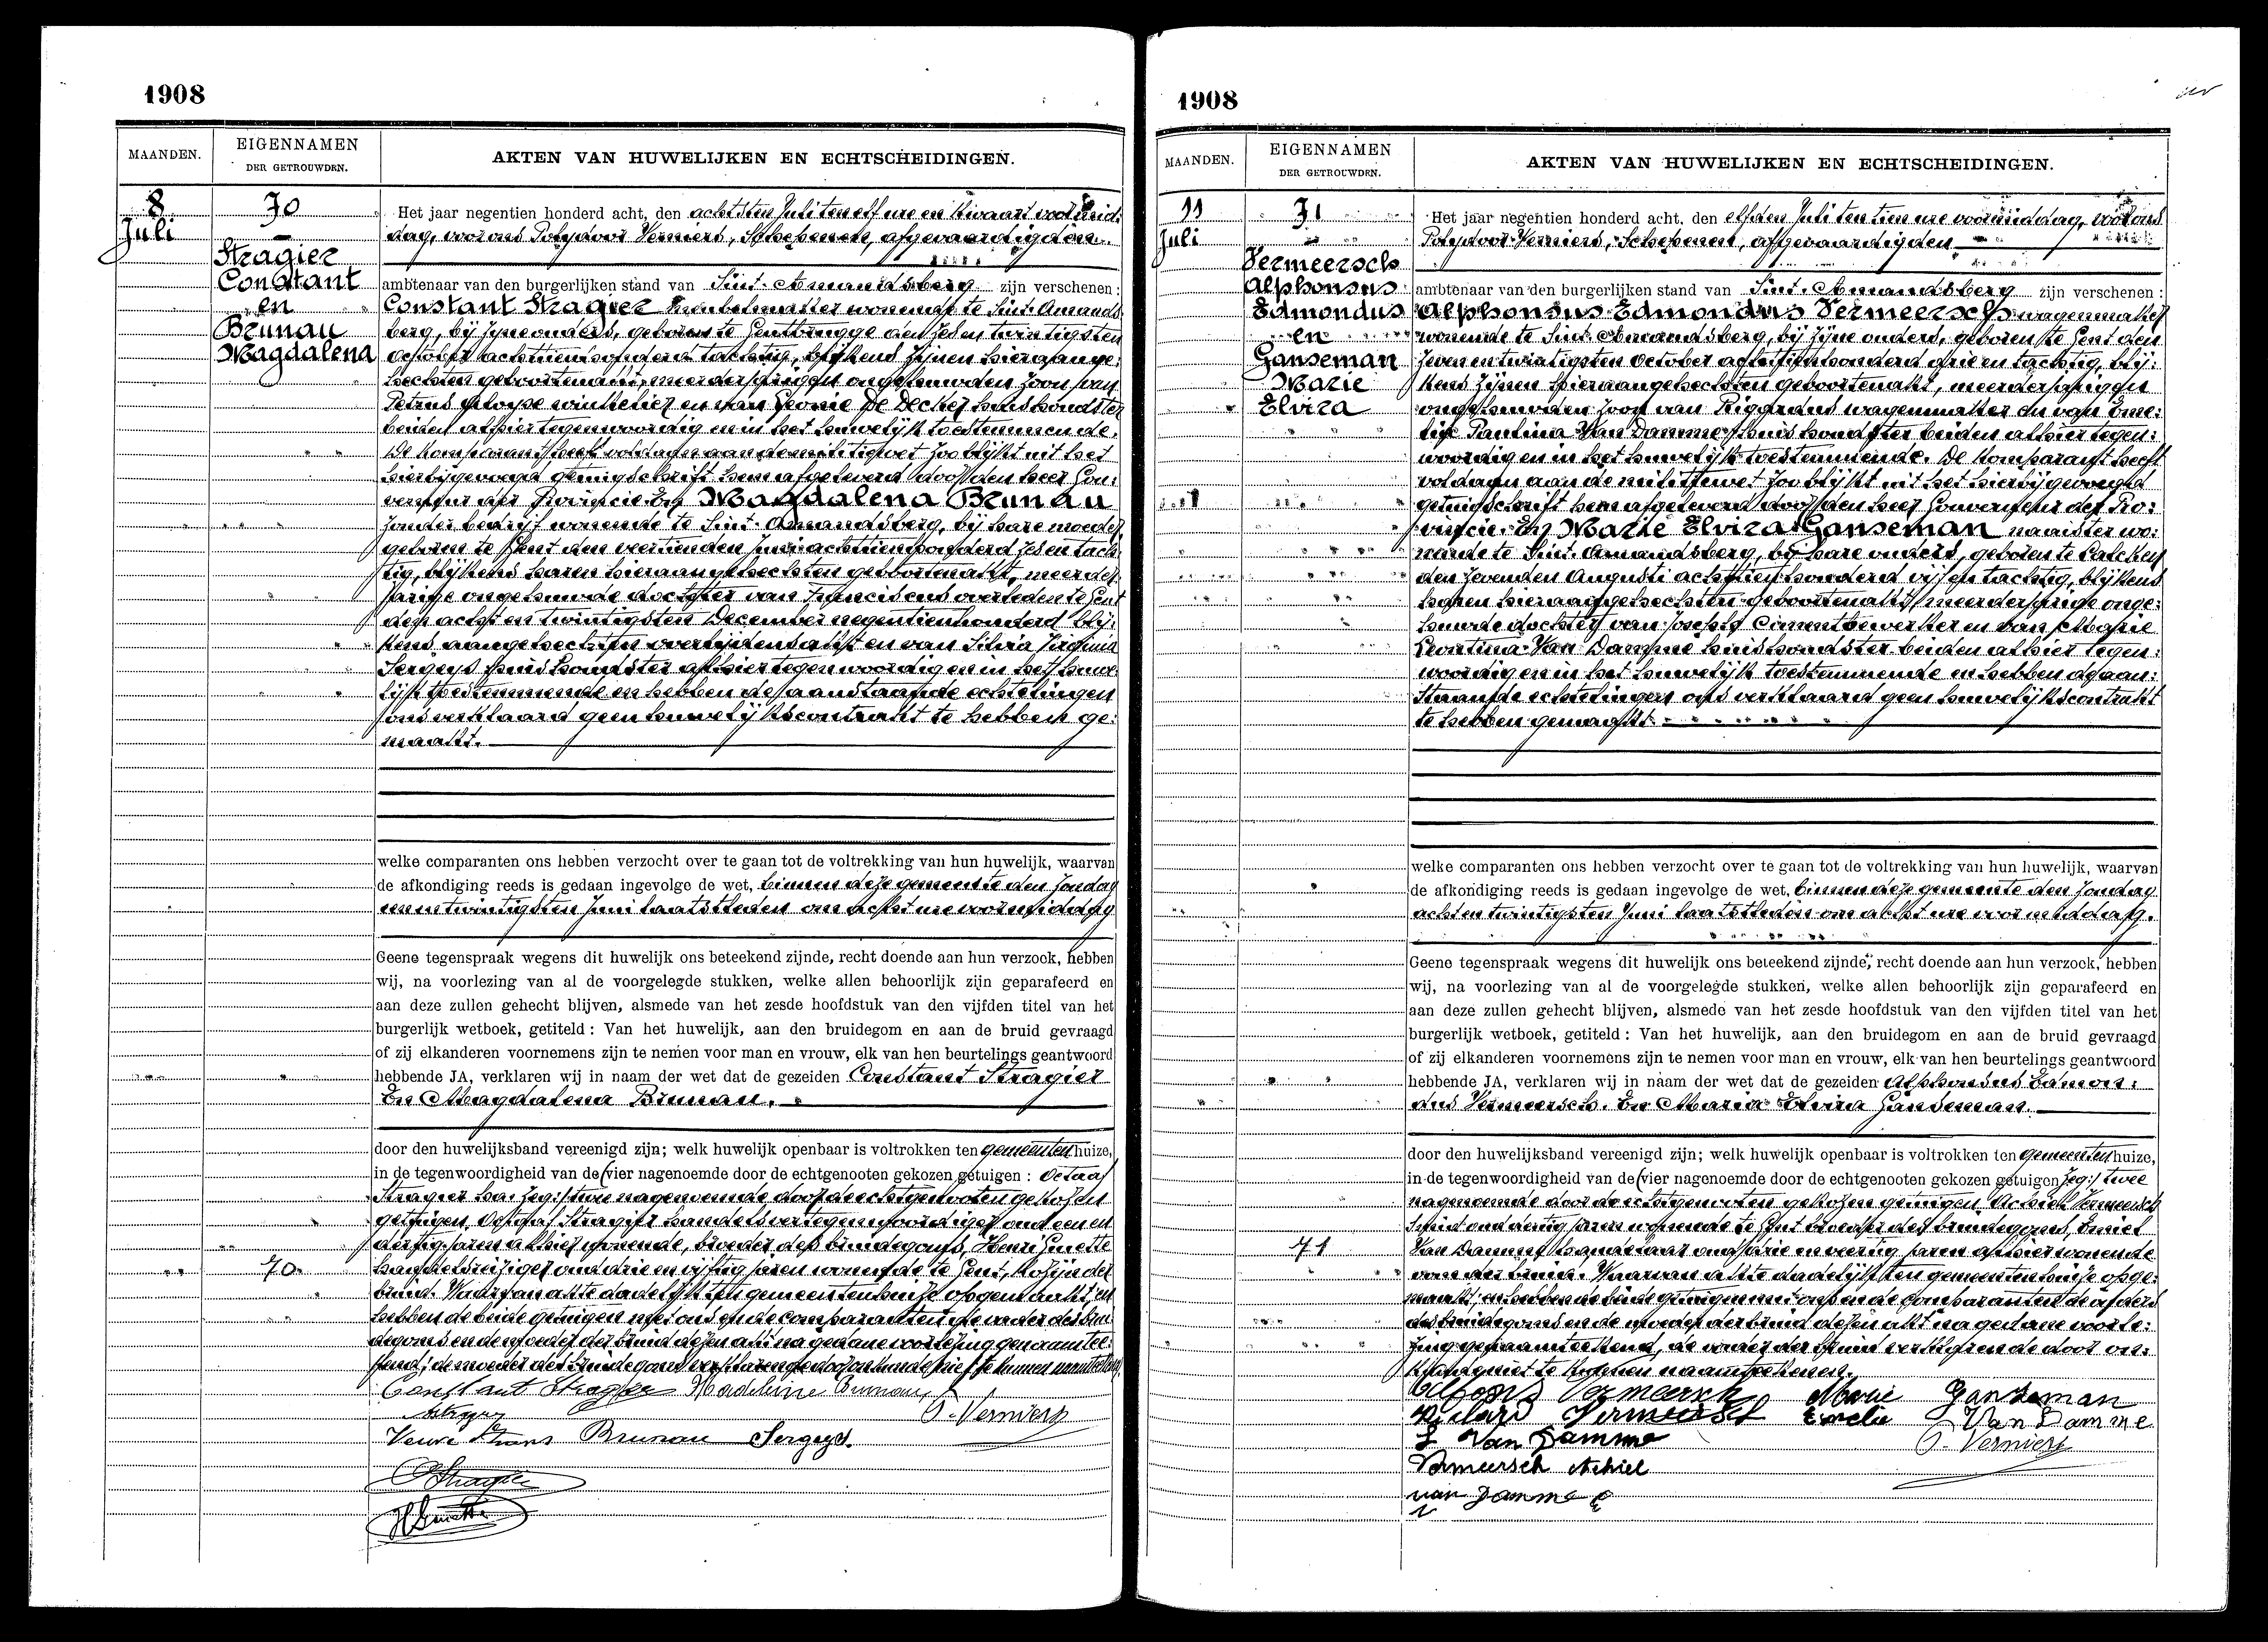 1908
MAANDEN.
EIGENNAMEN
DER GETROUWDEN.
AKTEN VAN HUWELIJKEN EN ECHTSCHEIDINGEN.
8
Juli
70
Stragier
Constant
en
Brunau
Magdalena
Het jaar negentien honderd acht, den achtsten Juli ten elf ure en kwaart voormid:
dag, voor ons Polydoor Verniers, Schepenen, afgevaardigden
ambtenaar van den burgerlijken stand van Sint-Amandsberg zijn verschenen:
Constant Stragier wonende te Sint-Amands
berg, bij zijne ouders, geboren te Gentbrugge den zesen twintigsten
October achttienhonderd tachtig, blijkens zijnen hieraange:
hechten geboortenakt, meerderjarigen ongehuwden zoon van
Petrus winkelier en van Leonie De Decker huishoudster
beiden alhier tegenwoordig en in het huwelijk toestemmende.
De komparant heeft voldaan aan de militiewet zoo blijkt uit het
hierbijgevoegd getuigschrift hem afgeleverd door den heer Gou:
verneur der Provincie. En Magdalena Brunau
zonder bedrijf wonende te Sint-Amandsberg, bij hare moeder
geboren te Gent den veertienden Juni achttienhonderd zesentach:
tig, blijkens haren hieraangehechten geboortenakt, meerder
jarige ongehuwde dochter van Franciscus overleden te Gent
den achtentwintigsten December negentienhonderd blij:
kens aangehechten overlijdensakt en van Silvia Virginia
Sergeys huishoudster alhier tegenwoordig en in het huwe
lijk toestemmende en hebben de aanstaande echtelingen
ons verklaard geen huwelijkscontrakt te hebben ge:
maakt.
welke comparanten ons hebben verzocht over te gaan tot de voltrekking van hun huwelijk, waarvan
de afkondiging reeds is gedaan ingevolge de wet, binnen deze gemeente den Zondag
eenentwintigsten Juni laatstleden om acht ure voormiddag
Geene tegenspraak wegens dit huwelijk ons beteekend zijnde, recht doende aan hun verzoek, hebben
wij, na voorlezing van al de voorgelegde stukken, welke allen behoorlijk zijn geparafeerd en
aan deze zullen gehecht blijven, alsmede van het zesde hoofdstuk van den vijfden titel van het
burgerlijk wetboek, getiteld: Van het huwelijk, aan den bruidegom en aan de bruid gevraagd
of zij elkanderen voornemens zijn te nemen voor man en vrouw, elk van hen beurtelings geantwoord
hebbende JA, verklaren wij in naam der wet dat de gezeiden Constant Stragier
En Magdalena Brunau.
door den huwelijksband vereenigd zijn; welk huwelijk openbaar is voltrokken ten gemeentenhuize,
in de tegenwoordigheid van de (vier nagenoemde door de echtgenooten gekozen getuigen: Octaaf
Stragier zeg:) twee nagenoemde door de echtgenooten gekozen
getuigen, Octaaf Stragier handelsvertegenwoordiger oud eenen
dertig jaren alhier wonende, broeder des bruidegoms, Henri
70
handelsreiziger oud drie en vijftig jaren wonende te Gent, kozijn der
bruid. Waarvan akte dadelijk ten gemeentenhuize opgemaakt, en
hebben de beide getuigen met ons en de comparanten de vader des brui
degoms en de moeder der bruid dezen akt na gedane voorlezing genaamtee:
kend; de moeder des bruidegoms verklarende door onkunde niet te kunnen naamteekenen
Constant Stragier Madeleine Brunau
P. Verniers
Veuve Frans Brunau Sergeys.
O Stragier
1908
MAANDEN.
EIGENNAMEN
DER GETROUWDEN.
AKTEN VAN HUWELIJKEN EN ECHTSCHEIDINGEN.
11
Juli
71
Vermeersch
Alphonsus
Edmondus
en
Ganseman
Marie
Elvira
Het jaar negentien honderd acht, den elfden Juli ten tien ure voormiddag, voor ons
Polydoor Verniers, Schepenen, afgevaardigden
ambtenaar van den burgerlijken stand van Sint-Amandsberg zijn verschenen:
Alphonsus Edmondus Vermeersch wagenmaker
wonende te Sint-Amandsberg, bij zijne ouders, geboren te Gent den
zeven en twintigsten October achttienhonderd drie en tachtig, blij:
kens zijnen hieraangehechten geboortenakt, meerderjarigen
ongehuwden zoon van Rigardus wagenmaker en van Eme:
lie Paulina Van Damme huishoudster beiden alhier tegen:
woordig en in het huwelijk toestemmende. De komparant heeft
voldaan aan de militiewet zoo blijkt uit het hierbijgevoegd
getuigschrift hem afgeleverd door den heer Gouverneur der Pro:
vincie. En Marie Elvira Ganseman naaister wo:
nende te Sint-Amandsberg, bij hare ouders, geboren te Calcken
den zevenden Augusti achttienhonderd vijf en tachtig, blijkens
haren hieraangehechten geboortenakt, meerderjarige onge:
huwde dochter van Joseph Cimentbewerker en van Marie
Leontina Van Damme huishoudster beiden alhier tegen:
woordig en in het huwelijk toestemmende en hebben de aan:
staande echtelingen ons verklaard geen huwelijkscontrakt
te hebben gemaakt.
welke comparanten ons hebben verzocht over te gaan tot de voltrekking van hun huwelijk, waarvan
de afkondiging reeds is gedaan ingevolge de wet, binnen deze gemeente den Zondag
achtentwintigsten Juni laatstleden om acht ure voormiddag.
Geene tegenspraak wegens dit huwelijk ons beteekend zijnde, recht doende aan hun verzoek, hebben
wij, na voorlezing van al de voorgelegde stukken, welke allen behoorlijk zijn geparafeerd en
aan deze zullen gehecht blijven, alsmede van het zesde hoofdstuk van den vijfden titel van het
burgerlijk wetboek, getiteld: Van het huwelijk, aan den bruidegom en aan de bruid gevraagd
of zij elkanderen voornemens zijn te nemen voor man en vrouw, elk van hen beurtelings geantwoord
hebbende JA, verklaren wij in naam der wet dat de gezeiden Alphonsus Edmon:
dus Vermeersch. En Marie Elvira Ganseman.
door den huwelijksband vereenigd zijn; welk huwelijk openbaar is voltrokken ten gemeentenhuize,
in de tegenwoordigheid van de (vier nagenoemde door de echtgenooten gekozen getuigen zeg:) twee
nagenoemde door de echtgenooten gekozen getuigen Achiel Vermeersch
Smid oud dertig jaren wonende te Gent broeder des bruidegoms, Emiel
71
Van Damme handelaar oud drie en veertig jaren alhier wonende
oom der bruid. Waarvan akte dadelijk ten gemeentenhuize opge:
maakt, en hebben de beide getuigen met ons en de comparanten de ouders
des bruidegoms en de moeder der bruid dezen akt na gedane voorle:
zing genaamteekend, de vader der bruid verklarende door on:
kunde niet te kunnen naamteekenen.
Alfons Vermeersch Marie Ganseman
Richard Vermeersch Emelie Van Damme
L Van Damme P. Verniers
Vermeersch Achiel
van Damme E